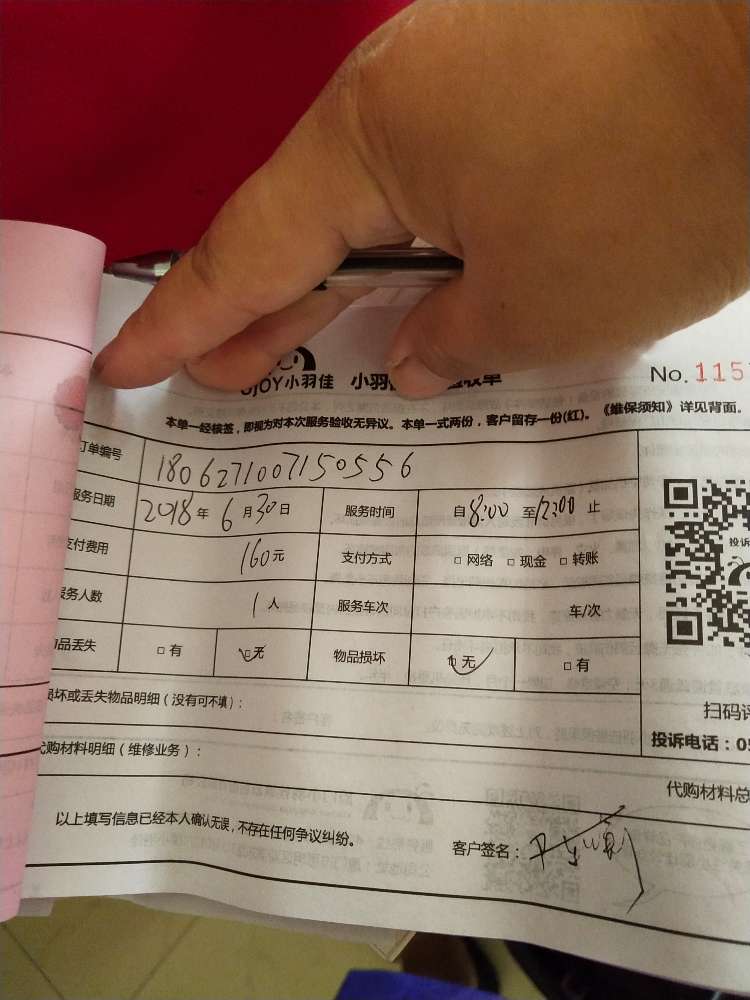 OJOY小羽佳 小羽
No. 115
本单一经核签，即视为对本次服务验收无异议。本单一式两份，客户留存一份(红)。《维保须知》详见背面。
订单编号 1806271007150556
服务日期 2018年 6月30日 服务时间 自8:00至12:00止
支付费用 160元 支付方式 □网络 □现金 □转账
服务人数 1人 服务车次 车/次
物品丢失 □有 □无 物品损坏 □无 □有
损坏或丢失物品明细（没有可不填）：
代购材料明细（维修业务）：
投诉
扫码评
投诉电话：05
代购材料总
以上填写信息已经本人确认无误，不存在任何争议纠纷。
客户签名：